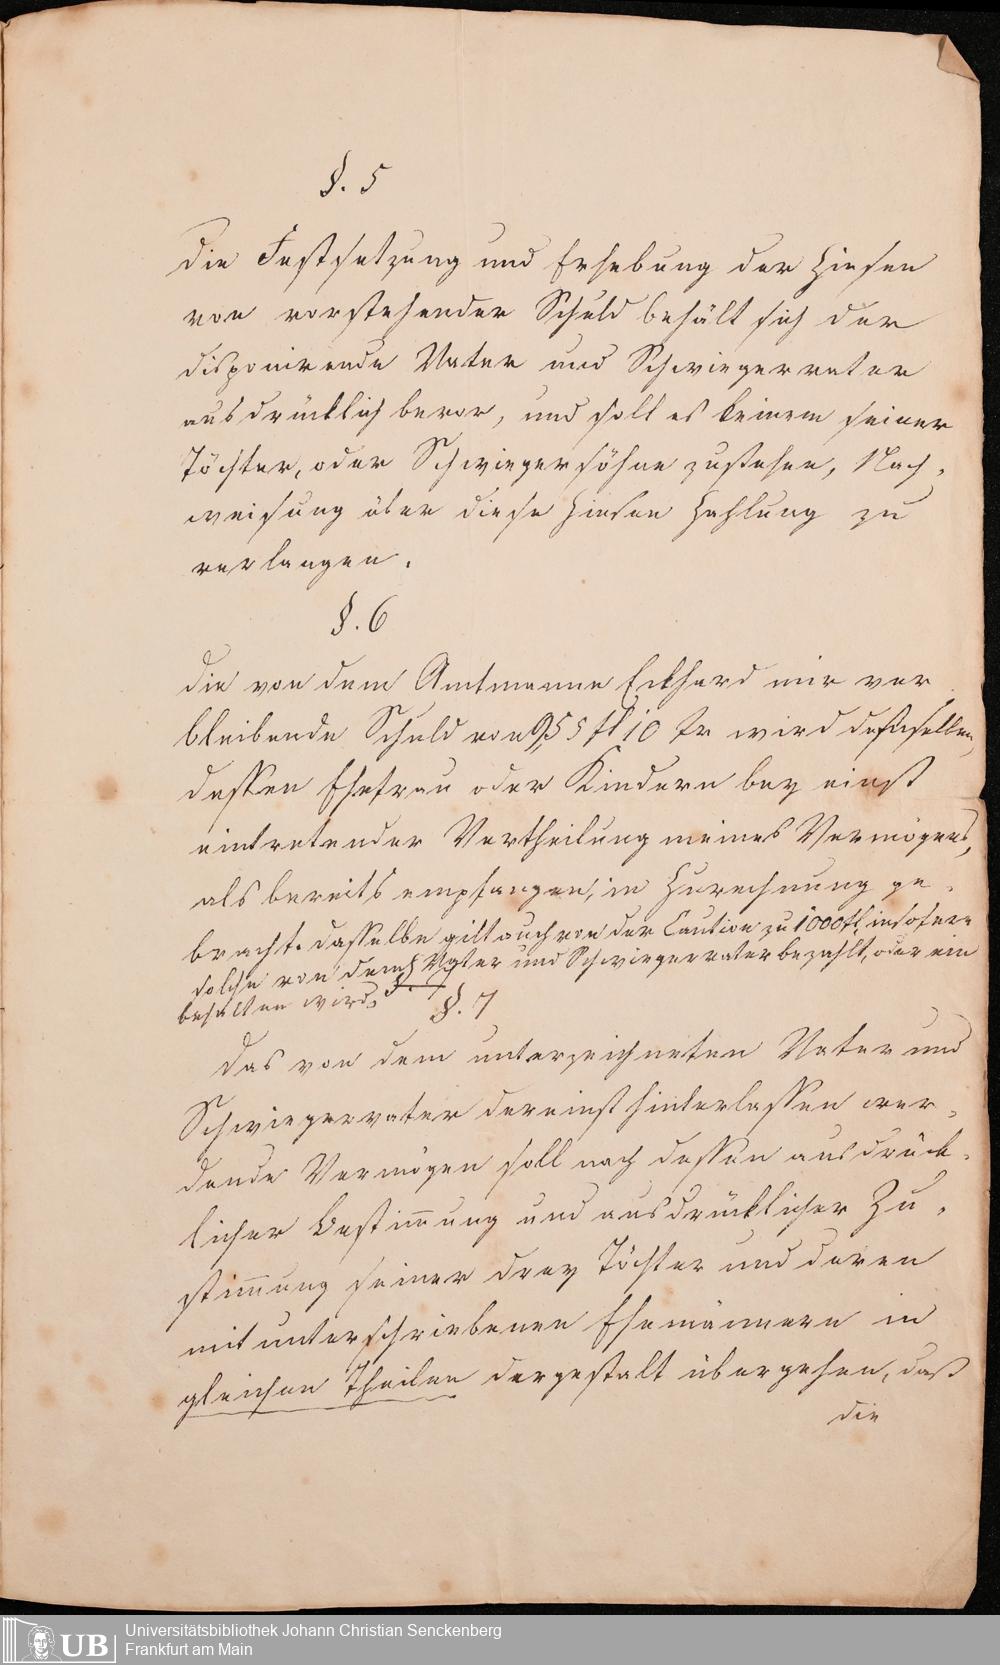 §. 5
Die Festsetzung und Erhebung der Zinsen
von vorstehender Schuld behält sich der
disponirende Vater und Schwiegervater
ausdrücklich bevor, und soll es keinem seiner
Töchter, oder Schwiegersöhne zustehen, Nach-
weisung über diese Zinsen Zahlung zu
verlangen.
§. 6
Die von dem Amtmanne Eckhard mir ver
bleibende Schuld von 955 fl 10 Xr wird demselben,
dessen Ehefrau oder Kindern bey einst
eintretender Vertheilung meines Vermögens,
als bereits empfangen, in Zurechnung ge-
bracht. Dasselbe gilt auch von der Caution zu 1000 fl, insofern
solche von dem Vater und Schwiegervater bezahlt, oder ein
behalten wird.
§. 7
Das von dem unterzeichneten Vater und
Schwiegervater dereinst hinterlassen wer-
dende Vermögen soll nach dessen ausdrück-
licher Bestimmung und ausdrücklicher Zu-
stimmung seiner drey Töchter und deren
mit unterschriebenen Ehemännern in
gleichen Theilen dergestalt übergehen, daß
die
UB
Universitätsbibliothek Johann Christian Senckenberg
Frankfurt am Main